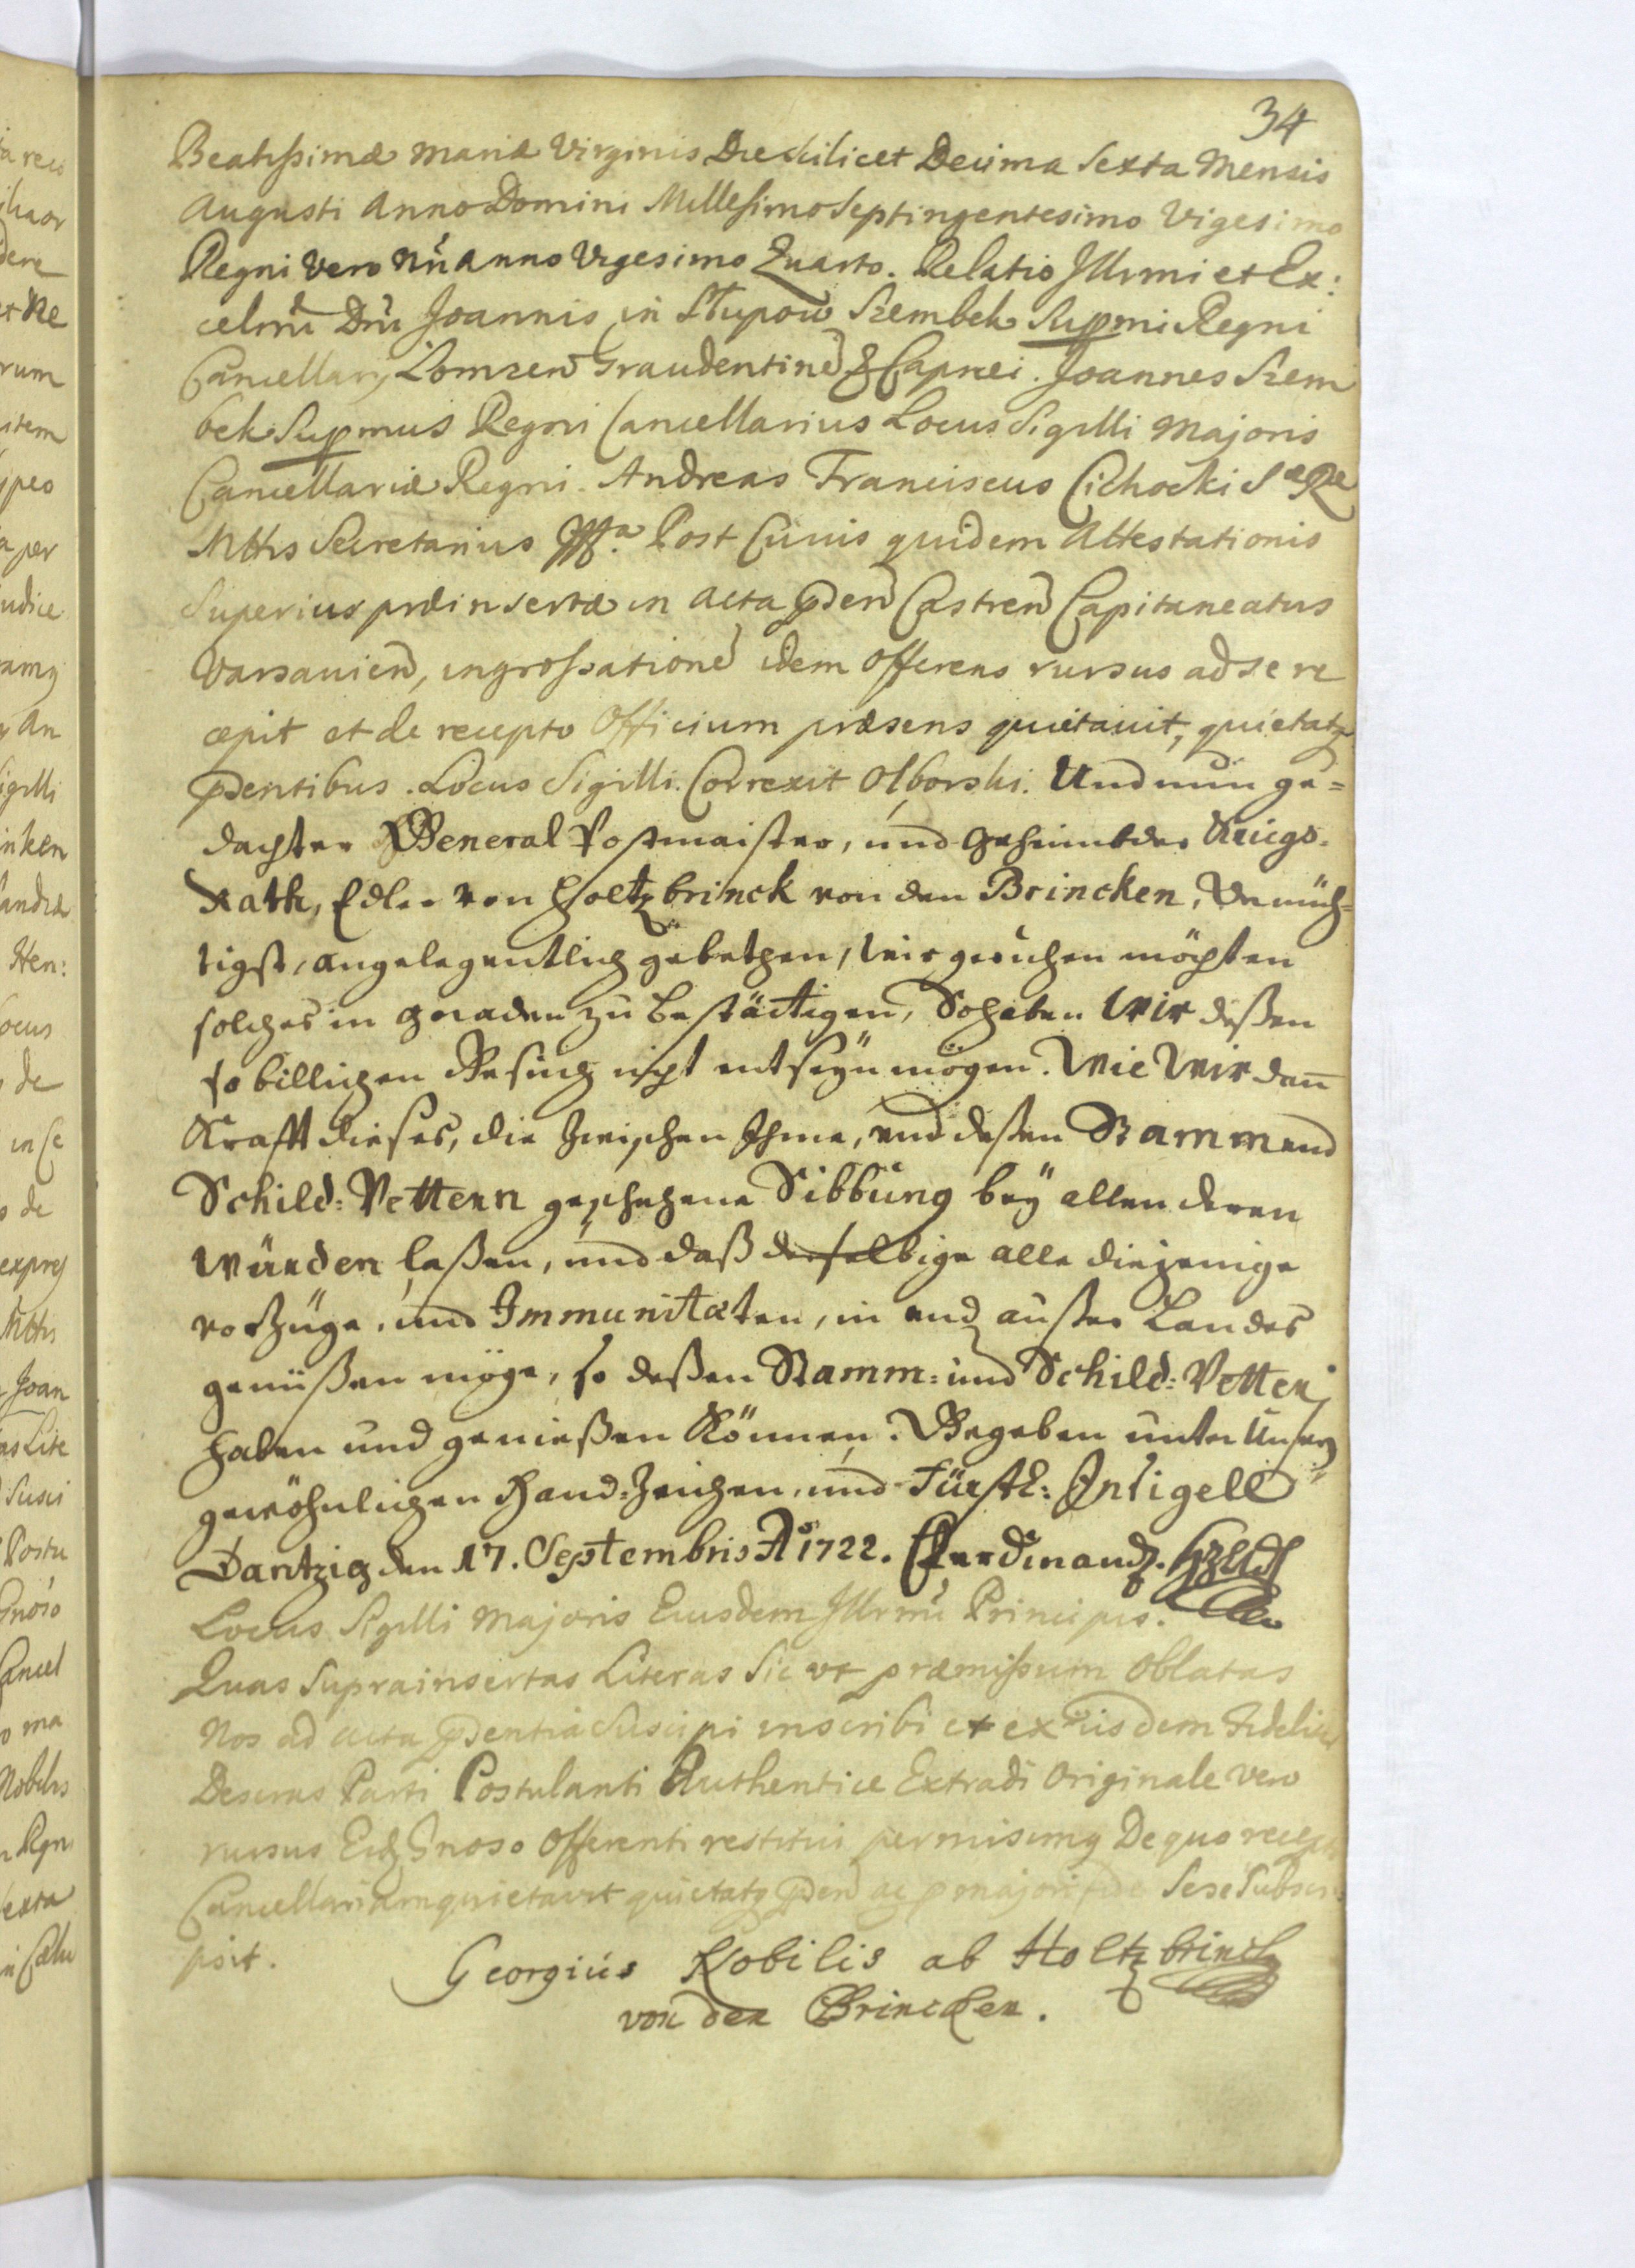 34
Beatissimæ Mariæ Virginis Die scilicet Decima Sexta Mensis
Augusti Anno Domini Millesimo Septingentesimo Vigesimo
Regni Vero Nri Anno Vigesimo Quarto. Relatio Illrmi et Ex:
celmi Dni Joannis in Słupow Szembek Suppmi Regni
Cancellarij, Lomzen Graudentinen & Capnei. Joannes Szem
bek Suppmus Regni Cancellarius Locus Sigilli Majoris
Cancellariæ Regni. Andreas Franciscus Cichocki S æ Ræ
Mttis Secretarius Post Cuius quidem Attestationis
Superius præinsertæ in Acta pden Castren Capitaneatus
Varsavien, ingrossatione idem Offerens rursus ad se re
cepit et de recepto Officium præsens quietavit, quietatq
pdentibus. Locus Sigilli. Correxit Olborski. Und nun ge=
dachter General Postmaister, und Geheimbder Kriegs.
Rath, Edler von Holtzbrinck von den Brincken, Demüh=
tigst, angelegentlich gebethen, Wir geruhen möchten
solches in Gnaden zu bestättigen, So haben Wir deßen
so billichen Gesuch nicht entseyn mögen. Wie Wir dan̄
Krafft dieses, die Zwischen Ihme, und deßen Stamm und
Schild: Vettern geschehene Sibbung bey allen deren
Würden laßen, und daß derselbige alle diejenige
vorzüge, und Immunitæten, in und außer Landes
genüßen möge, so deßen Stamm: und Schild: Vettern
haben und genießen Können. Gegeben unter Unsern
gewöhnlichen Hand: Zeichen, und Fürstl: Insigell
Dantzig den 17. Septembris Aº 1722. Ferdinand.
Locus Sigilli Majoris Eiusdem Illrmi Principis.
Quas Suprainsertas Literas Sic ut præmissum Oblatas
Nos ad Acta pdentia Suscipi inscribi et ex iisdem Fideliter
Descrips Parti Postulanti Authentice Extradi Originale vero
rursus Eid Gnoso Offerenti restitui permisimq De quo recepto
Cancellariam quietavit quietatq pden ac p majori fide Sese Subscri:
psit.
Georgius Nobilis ab Holtzbrinck
von den Brincken.